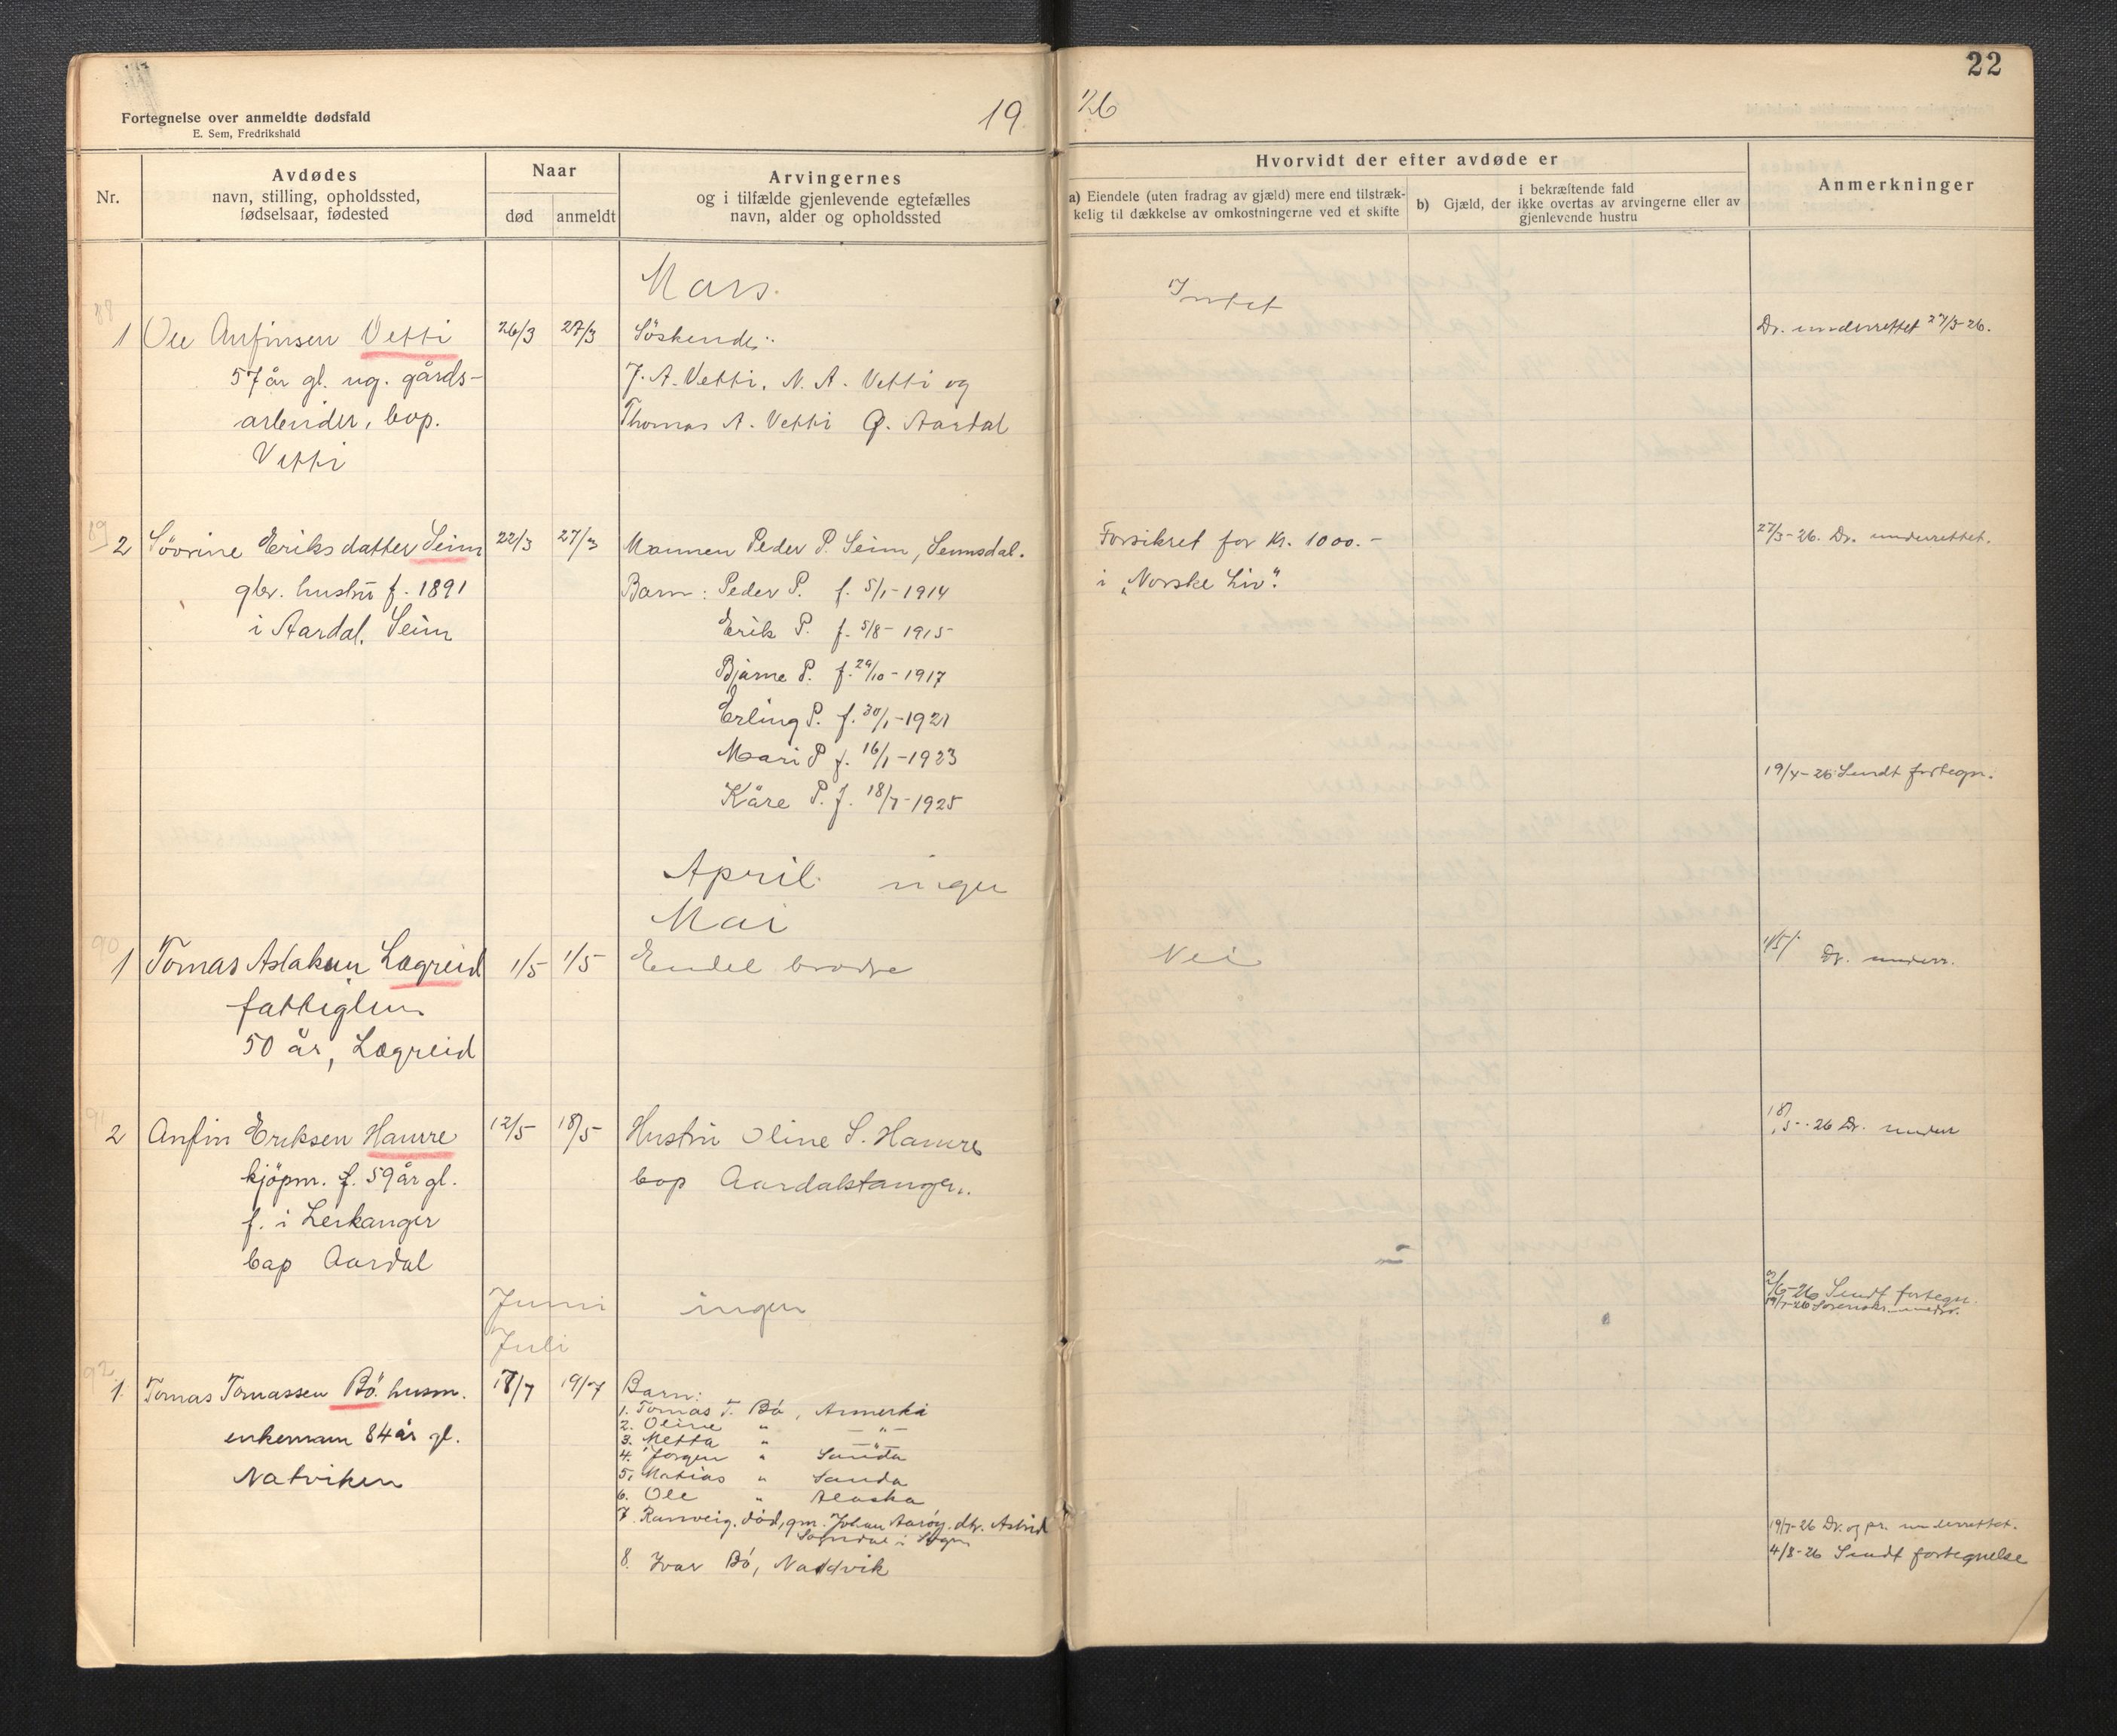 22
Fortegnelse over anmeldte dødsfald
E. Sem, Fredrikshald
19 26
Nr.
Avdødes
navn, stilling, opholdssted,
fødselsaar, fødested
Naar
død
anmeldt
Arvingernes
og i tilfælde gjenlevende egtefælles
navn, alder og opholdssted
Hvorvidt der efter avdøde er
a) Eiendele (uten fradrag av gjæld) mere end tilstræk-
kelig til dækkelse av omkostningerne ved et skifte
i bekræftende fald
b) Gjæld, der ikke overtas av arvingerne eller av
gjenlevende hustru
Anmerkninger
Mars.
88
1 Ole Anfinsen Vetti 26/3 27/3 Söskende:
57 år gl. ug. gårds-
arbeider, bop.
Vetti
J. A. Vetti, N. A. Vetti og
Thomas A. Vetti Ø. Aardal
Intet
Dr. underrettet 27/3-26.
89
2 Sövrine Eriksdatter Seim 22/3 27/3 Mannen Peder P. Seim, Seimsdal.
gbr. hustru f. 1891
i Aardal. Seim
Barn: Peder P. f. 5/1-1914
Erik P. f. 5/8-1915
Bjarne P. f. 29/10-1917
Erling P. f. 30/1-1921
Mari P f. 16/1-1923
Kåre P. f. 18/7-1925
Forsikret for Kr. 1000.-
i „Norske Liv".
27/3-26. Dr. underrettet.
19/4-26 Sendt fortegn.
April ingen
Mai
90
1 Tomas Aslaksen Lægreid 1/5 1/5 Endel brødre
fattiglem
50 år, Lægreid
Nei
1/5 Dr. underr.
91
2 Anfin Eriksen Hamre 12/5 18/5 Hustru Oline S. Hamre
kjöpm. f. 59 år gl.
f. i Leikanger
bop Aardal
bop Aardalstangen.
18/5-26 Dr. under
2/6-26 Sendt fortegn.
19/7-26 Sorenskr. underr.
Juni ingen
Juli
92
1. Tomas Tomassen Bö. husm. 18/7 19/7 Barn:
enkemann 84 år gl.
Natviken
1. Tomas T. Bö, Amerika
2. Oline " - " -
3. Metta " - " -
4. Jörgen " Sanda
5. Matias " Sanda
6. Ole " Alaska
7. Ranveig. död, gm. Johan Aaröy. dtr. Astrid
Sogndal i Sogn
8. Ivar Bö, Naddvik
19/7-26 Dr. og pr. underrettet.
4/8-26 Sendt fortegnelse